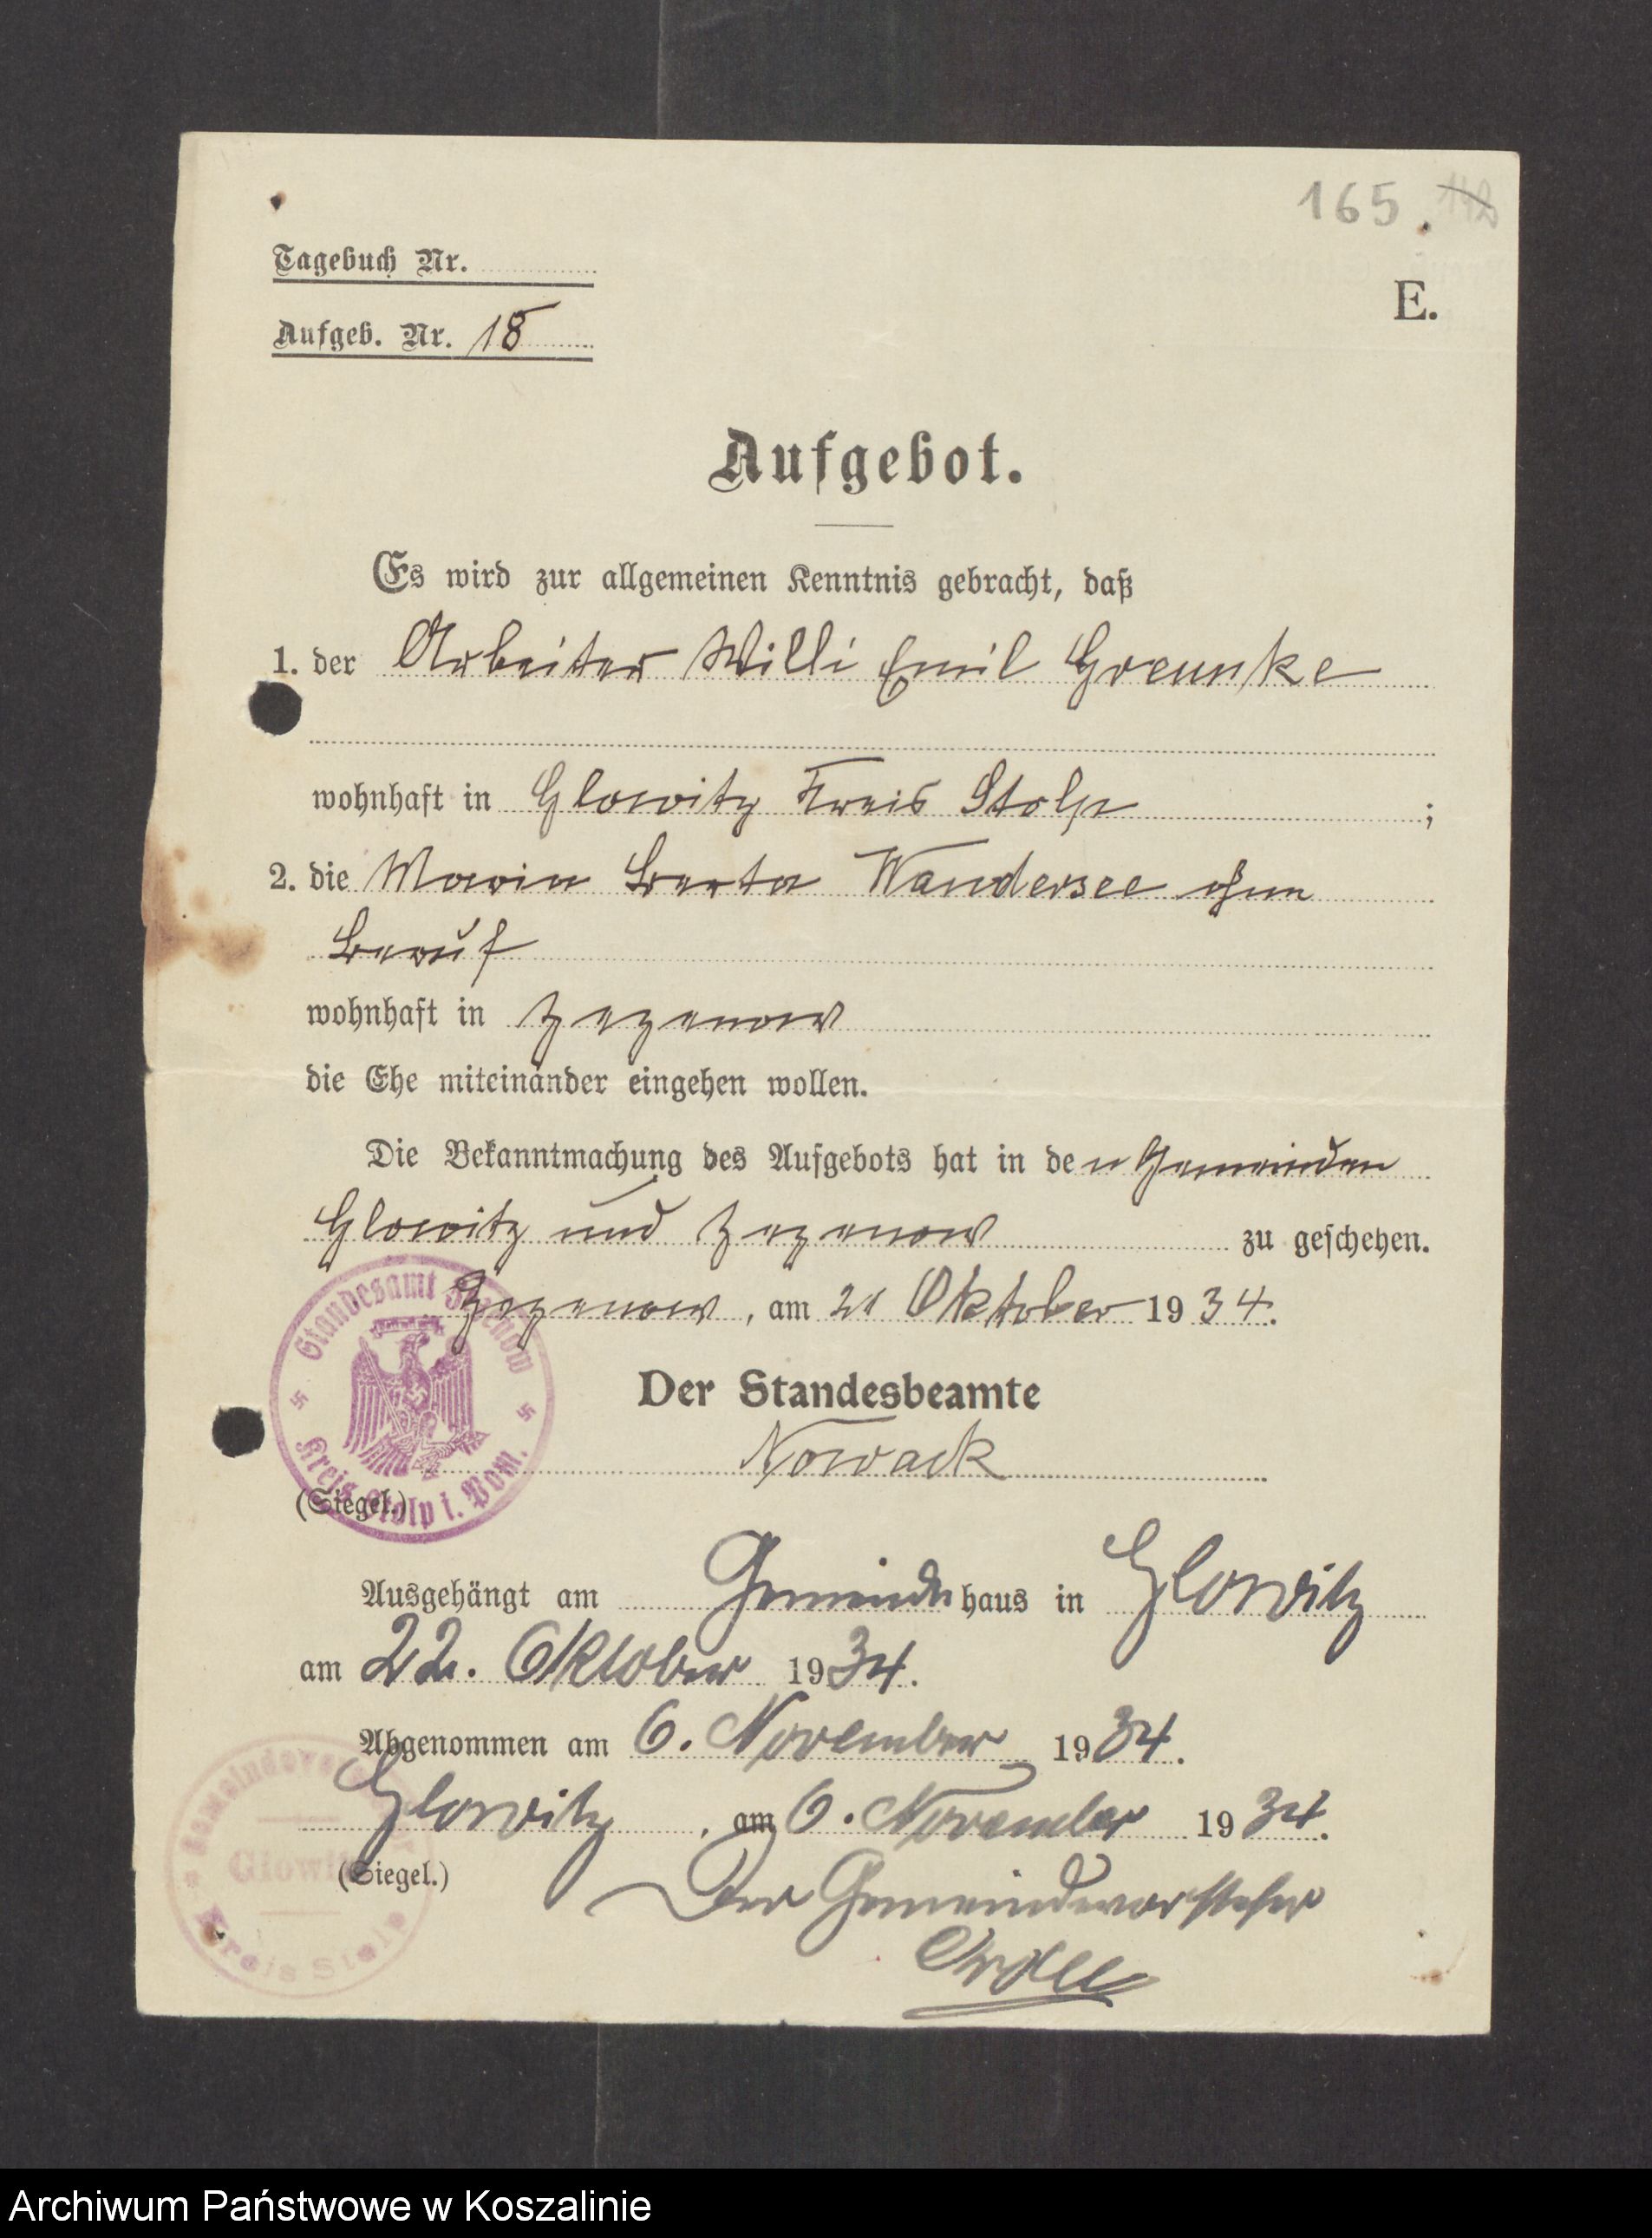 165. 112
Tagebuch Nr.
E.
Aufgeb. Nr. 18
Aufgebot.
Es wird zur allgemeinen Kenntnis gebracht, daß
1. der Arbeiter Willi Emil Greunke
wohnhaft in Glowitz Kreis Stolp ;
2. die Maria Berta Wandersee ohne
Beruf
wohnhaft in Zezenow
die Ehe miteinander eingehen wollen.
Die Bekanntmachung des Aufgebots hat in den Gemeinden
Glowitz und Zezenow zu geschehen.
Zezenow, am 21 Oktober 1934.
Standesamt Zezenow
Kreis Stolp i. Pom.
Der Standesbeamte
Nowack
(Siegel.)
Ausgehängt am Gemeindehaus in Glowitz
am 22. Oktober 1934.
Abgenommen am 6. November 1934.
Glowitz, am 6. November 1934.
(Siegel.)
Glowitz
Kreis Stolp
Der Gemeindevorsteher
Archiwum Państwowe w Koszalinie